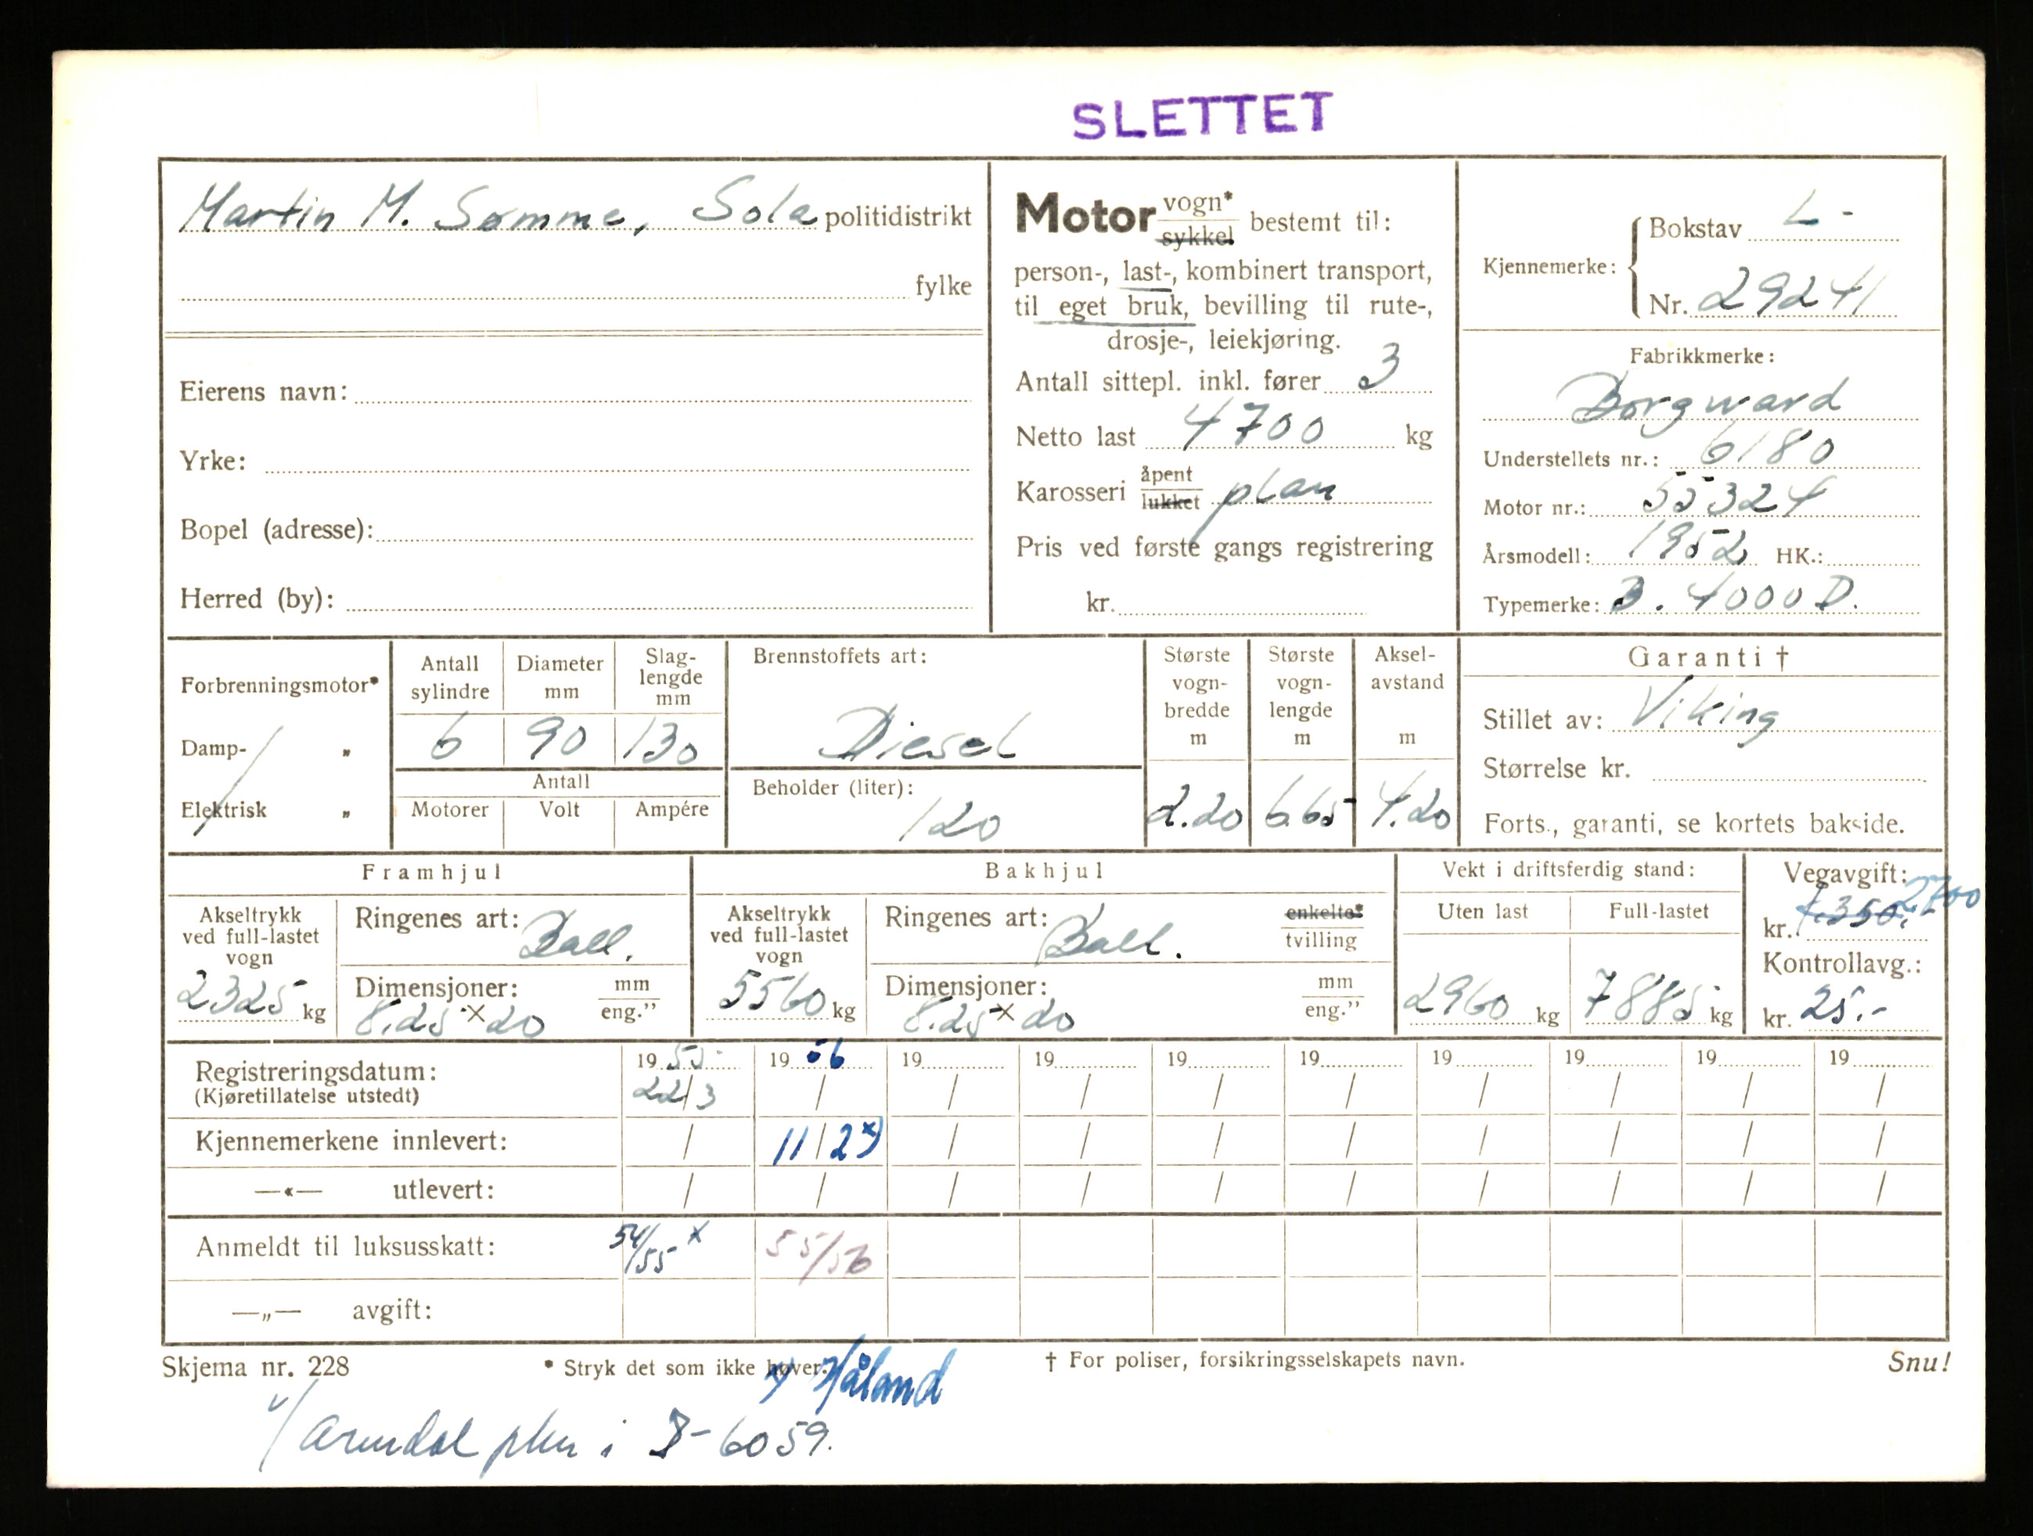 SLETTET
Martin M. Sømme, Sola politidistrikt
fylke
Eierens navn:
Yrke:
Bopel (adresse):
Herred (by):
Motor vogn* sykkel bestemt til:
person-, last-, kombinert transport,
til eget bruk, bevilling til rute-,
drosje-, leiekjøring.
Antall sittepl. inkl. fører 3
Netto last 4700 kg
Karosseri åpent lukket plan
Pris ved første gangs registrering
kr.
Kjennemerke: Bokstav L -
Nr. 29241
Fabrikkmerke:
Borgward
Understellets nr.: 6180
Motor nr.: 55324
Årsmodell: 1952 HK.:
Typemerke: B. 4000 D.
Forbrenningsmotor*
Damp- „
Elektrisk „
Antall sylindre
Diameter mm
Slag-lengde mm
6 90 130
Antall
Motorer Volt Ampére
Brennstoffets art:
Diesel
Beholder (liter):
120
Største vogn-bredde m
2.20
Største vogn-lengde m
6.65
Aksel-avstand m
4.20
Garanti †
Stillet av: Viking
Størrelse kr.
Forts., garanti, se kortets bakside.
Framhjul
Akseltrykk ved full-lastet vogn
2325 kg
Ringenes art: Ball.
Dimensjoner: mm eng.”
8.25 × 20
Bakhjul
Akseltrykk ved full-lastet vogn
5560 kg
Ringenes art: Ball. enkelte* tvilling
Dimensjoner: mm eng.”
8.25 × 20
Vekt i driftsferdig stand:
Uten last Full-lastet
2960 kg 7885 kg
Vegavgift: 2700
kr. 1.350.-
Kontrollavg.:
kr. 25.-
Registreringsdatum: 19 55 19 56 19 19 19 19 19 19 19 19
(Kjøretillatelse utstedt) 22/3 / / / / / / / / /
Kjennemerkene innlevert: / 11/2 x) / / / / / / / /
—«— utlevert: / / / / / / / / / /
Anmeldt til luksusskatt: 54/55 x 55/56
—„— avgift:
Skjema nr. 228 * Stryk det som ikke høver. † For poliser, forsikringsselskapets navn. Snu!
x) Håland
Arendal i I-6059.